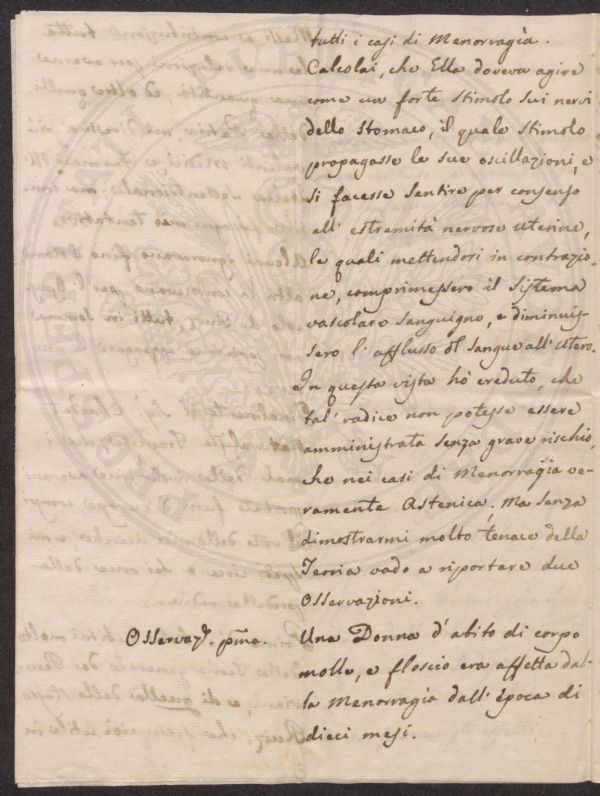 tutti i casi di Menorragìa.
Calcolai, che Ella doveva agire
come un forte stimolo sui nervi
dello stomaco, il quale stimolo
propagasse le sue oscillazioni, e
si facesse sentire per consenso
all' estremità nervose uterine,
le quali mettendosi in contrazio-
ne, comprimessero il sistema
vascolare sanguigno, e diminuis-
sero l' afflusso del sangue all' Utero.
In questa vista hò creduto, che
tal' radice non potesse essere
amministrata senza grave rischio,
che nei casi di Menorragìa ve-
ramente Astenica; Ma senza
dimostrarmi molto tenace della
Teoria vado a riportare due
Osservazioni.
Osservaz.e pma.
Una Donna d' abito di corpo
molle, e floscio era affetta dal-
la Menorragìa dall' Epoca di
dieci mesi.